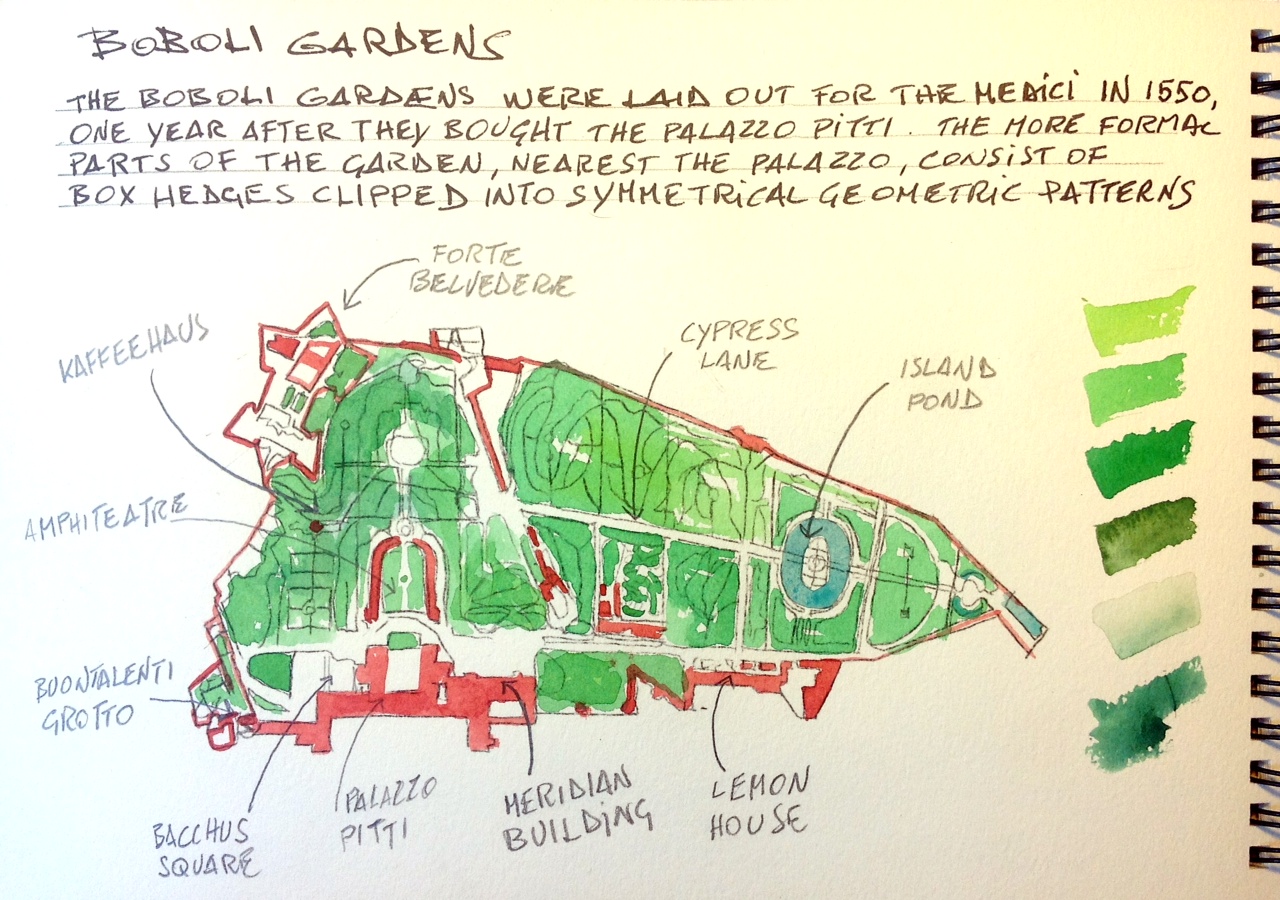 BOBOLI GARDENS
THE BOBOLI GARDENS WERE LAID OUT FOR THE MEDiCi IN 1550,
ONE YEAR AFTER THEY BOUGHT THE PALAZZO PiTTi. THE MORE FORMAL
PARTS OF THE GARDEN, NEAREST THE PALAZZO, CONSiST OF
BOX HEDGES CLIPPED INTO SYMMETRiCAL GEOMETRiC PATTERNS
FORTE
BELVEDERE
KAFFEEHAUS
CYPRESS
LANE
ISLAND
POND
AMPHITEATRE
BUONTALENTI
GROTTO
BACCHUS
SQUARE
PALAZZO
PITTI
MERIDIAN
BUILDiNG
LEMON
HOUSE